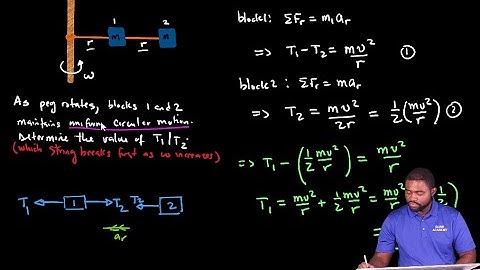 1
2
m
m
r
r
ω
As peg rotates, blocks 1 and 2
maintains uniform circular motion.
Determine the value of T₁/T₂.
(which string breaks first as ω increases)
T₁ 1 T₂ T₂ 2
aᵣ
block1: ΣFᵣ = m₁aᵣ
=> T₁ - T₂ = mv²/r ①
block2: ΣFᵣ = maᵣ
=> T₂ = mv²/2r = 1/2(mv²/r) ②
=> T₁ - (1/2 mv²/r) = mv²/r
T₁ = mv²/r + 1/2 mv²/r = mv²/r
=